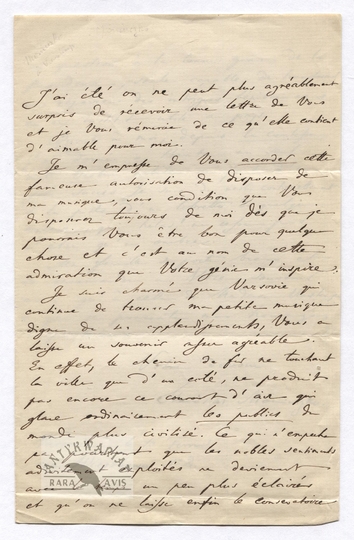 J'ai été on ne peut plus agréablement
surpris de recevoir une lettre de Vous
et je Vous remercie de ce qu'elle contient
d'aimable pour moi.
Je m'empresse de Vous accorder cette
fameuse autorisation de disposer de
ma musique, sous condition que Vous
disposerez toujours de moi dès que je
pourrais Vous être bon pour quelque
chose et c'est au nom de cette
admiration que Votre génie m'inspire.
Je suis charmé que Varsovie qui
continue de trouver ma petite musique
digne de ses applaudissements, Vous a
laissé un souvenir agréable.
En effet, le chemin de fer ne touchant
la ville que d'un côté, ne produit
pas encore ce courant d'air qui
glace ordinairement les publics du
monde plus civilisé. Ce qui n'empêche
que les nobles sentiments
exploités ne deviennent
avec un peu plus éclairés
et qu'on ne laisse enfin le conservatoire
ANTYKWARIAT
RARA AVIS